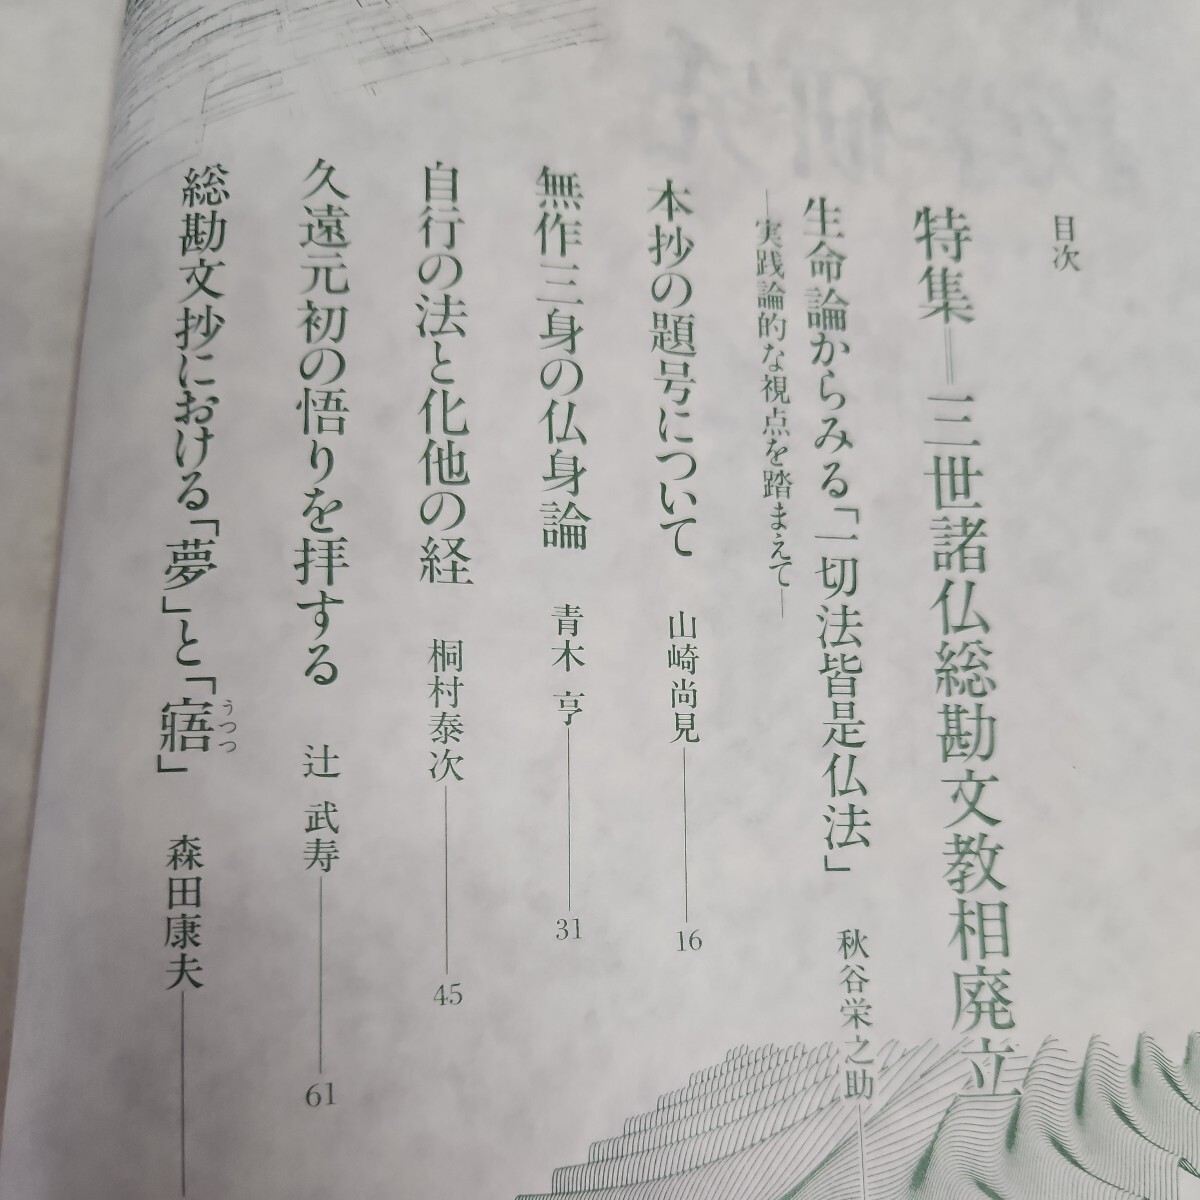 目次
特集＝三世諸仏総勘文教相廃立
生命論からみる「一切法皆是仏法」 秋谷栄之助
―実践論的な視点を踏まえて―
本抄の題号について 山崎尚見 16
無作三身の仏身論 青木 亨 31
自行の法と化他の経 桐村泰次 45
久遠元初の悟りを拝する 辻 武寿 61
総勘文抄における「夢」と「寤」 森田康夫
うつつ